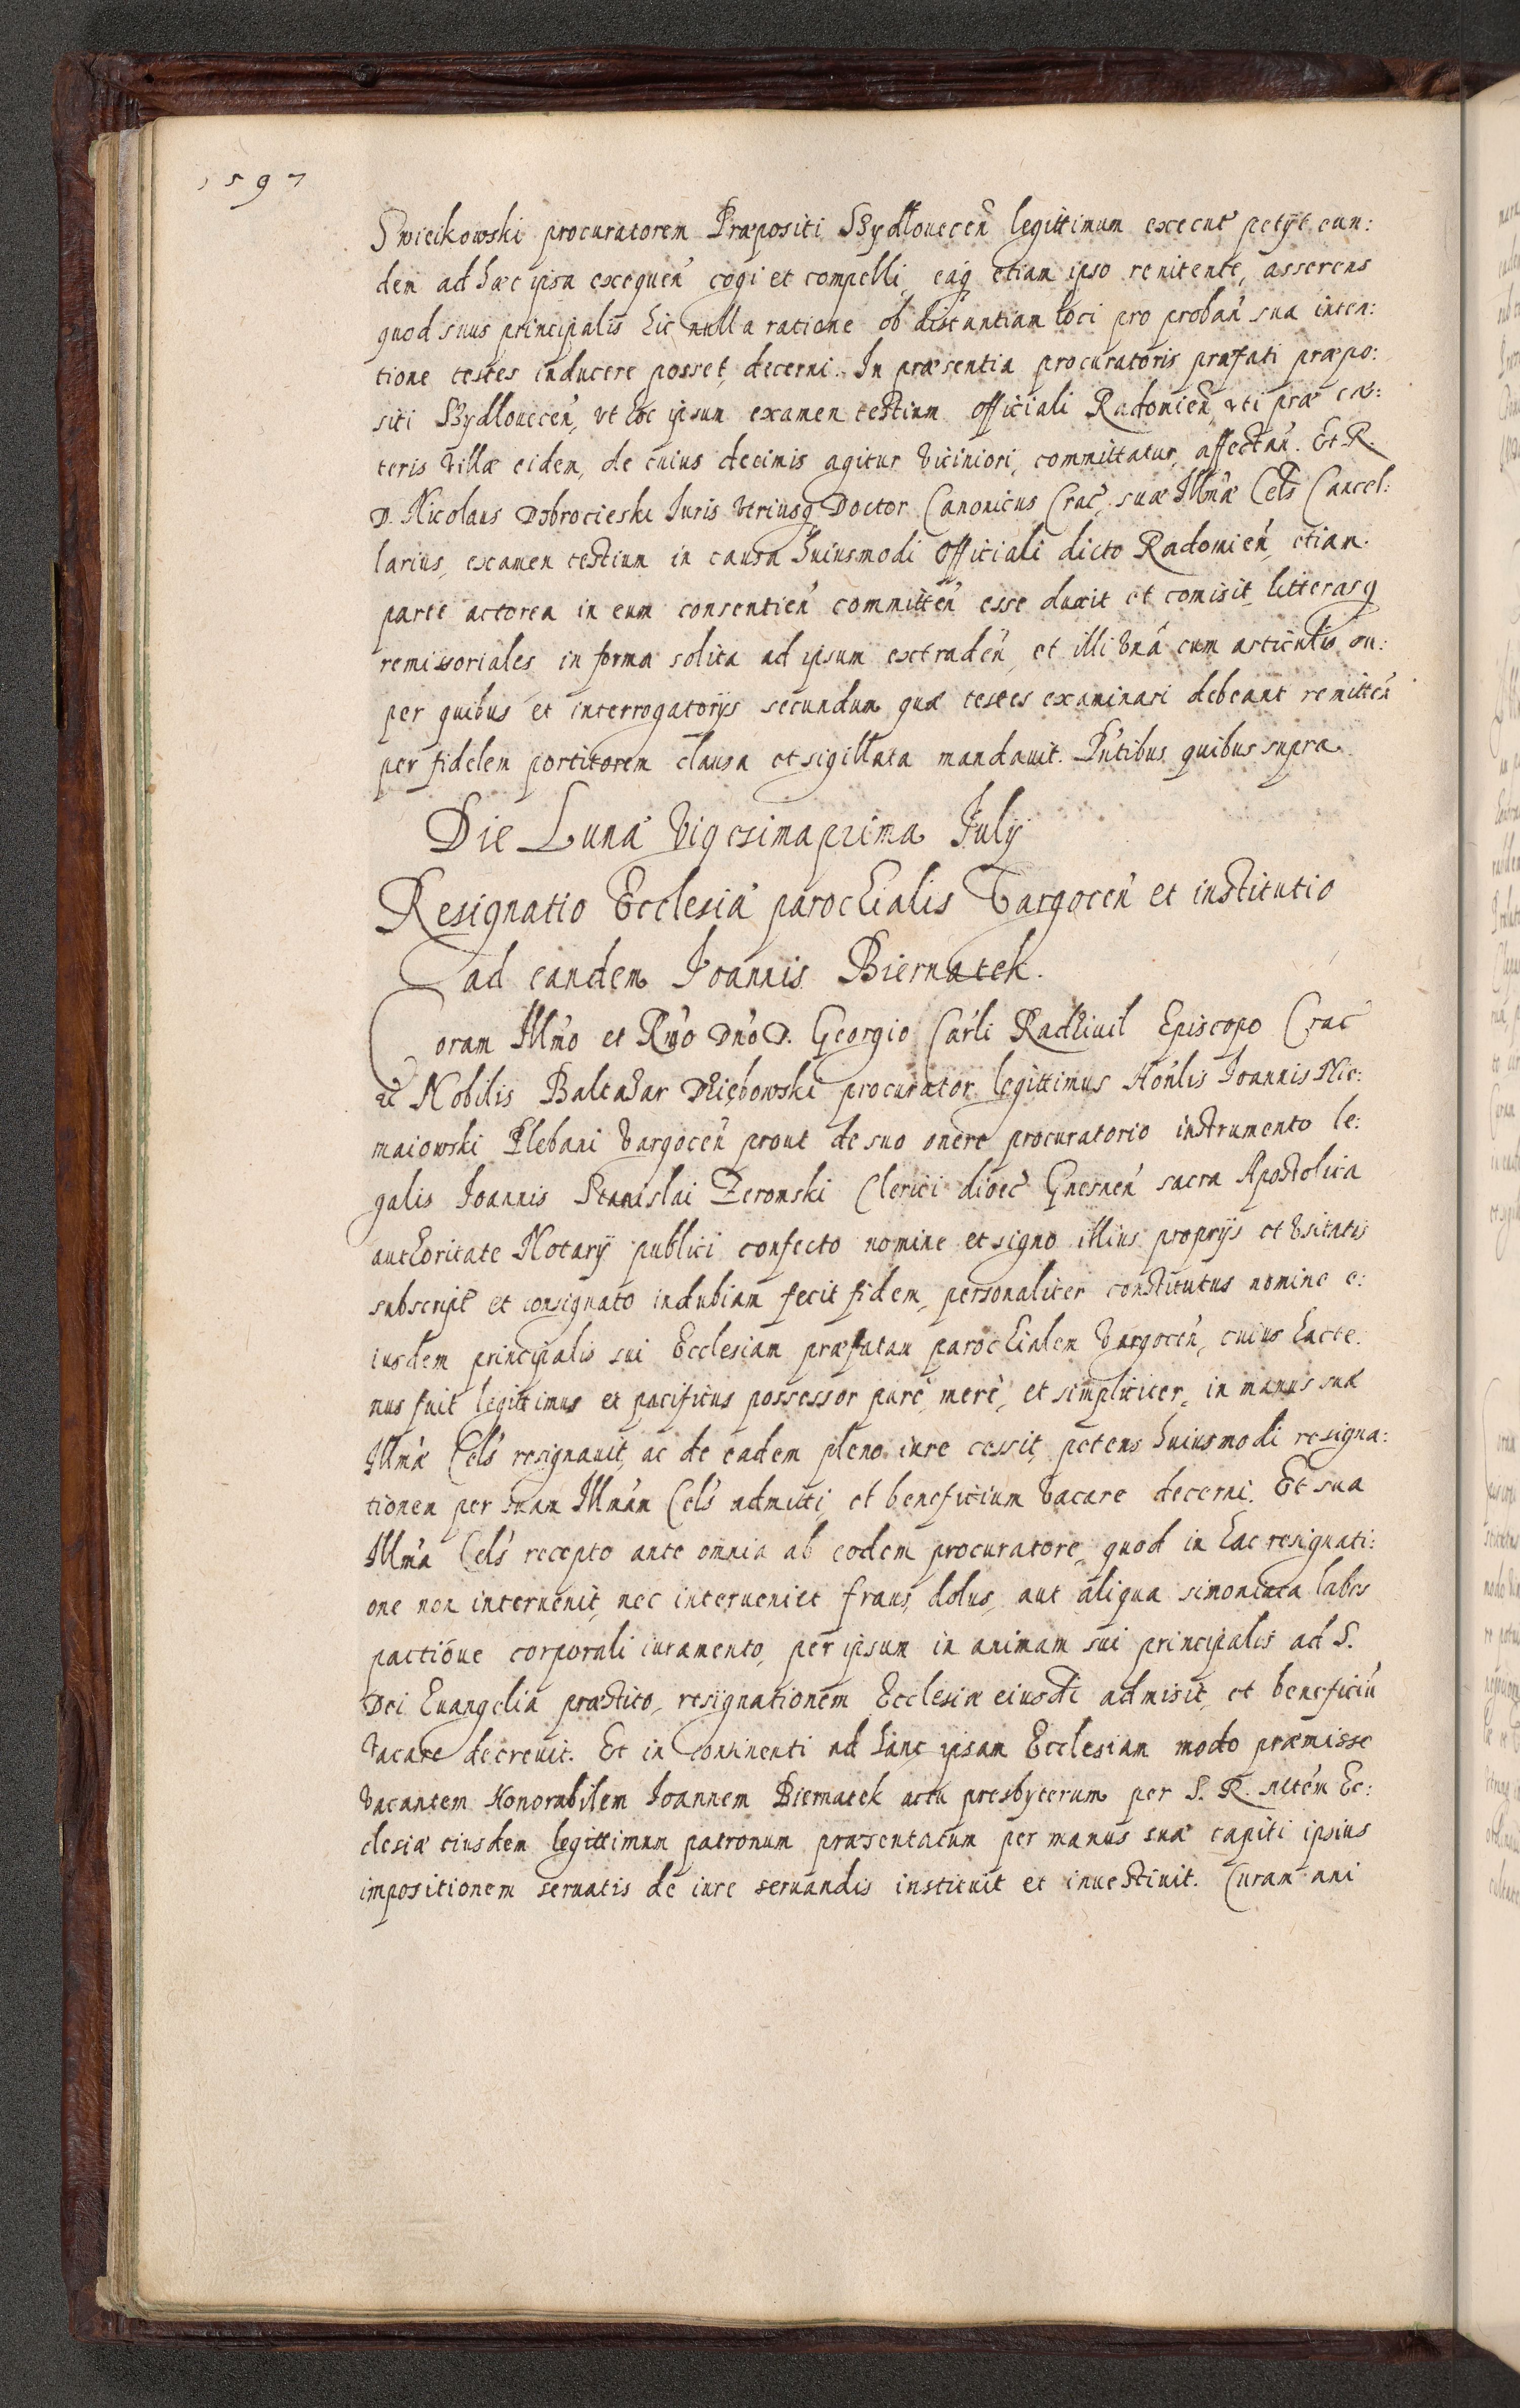 1597
Swieikowski procuratorem Præpositi Szydlouecen̄ legittimum execut̄ petÿt eun:
dem ad hæc ipsa exequen̄ cogi et compelli, eaq̨ etiam ipso renitente, asserens
quod suus principalis hic nulla ratione ob distantiam loci pro proban̄ sua inten:
tione testes inducere posset, decerni. In præsentia procuratoris præfati præpo:
siti Szydlouecen̄, vt hoc ipsum examen testium officiali Radomien̄, vti præ cæ:
teris villæ eidem, de cuius decimis agitur viciniori, committatur, affectan̄. Et R.
D. Nicolaus Dobrocieski Iuris vtriusq̨ Doctor Canonicus Crac̄, suæ Illmæ Cels̄ Cancel:
larius, examen testium in causa huiusmodi officiali dicto Radomien̄, etiam
parte actorea in eum consentien̄ committen̄ esse duxit et comisit, litterasq̨
remissoriales in forma solita ad ipsum extraden̄, et illi vnà cum articulis su:
per quibus et interrogatorÿs secundum quæ testes examinari debeant remitten̄
per fidelem portitorem clausa et sigillata mandauit. Pn̄tibus quibus supra.
Die Lunæ Vigesimaprima Iulÿ
Resignatio Ecclesiæ parochialis Vargocen̄ et institutio
ad eandem Ioannis Biernatek.
Coram Illmo et Rm̄o Dn̄o D. Georgio Car̄li Radziuil Episcopo Crac̄
etc̄ Nobilis Baltazar Dziębowski procurator legittimus Hon̄lis Ioannis Nie:
maiowski Plebani Vargocen̄ prout de suo onere procuratorio instrumento le:
galis Ioannis Stanislai Zeromski Clerici dioec̄ Gnesnen̄ sacra Apostolica
authoritate Notarÿ publici confecto nomine et signo illius proprÿs et vsitatis
subscript̄ et consignato indubiam fecit fidem, personaliter constitutus nomine e:
iusdem principalis sui Ecclesiam præfatam parochialem Vargocen̄, cuius hacte:
nus fuit legittimus et pacificus possessor purè, merè, et simpliciter, in manus suæ
Illmæ Cels̄ resignauit, ac de eadem pleno iure cessit, petens huiusmodi resigna:
tionem per suam Illmam Cels̄ admitti, et beneficium vacare decerni. Et sua
Illma Cels̄ recepto ante omnia ab eodem procuratore, quod in hac resignati:
one non interuenit, nec interueniet fraus, dolus, aut aliqua simoniaca labes
pactioue corporali iuramento, per ipsum in animam sui principalis ad S.
Dei Euangelia præstito, resignationem Ecclesiæ eiusdē admisit, et beneficiū
vacare decreuit. Et in continenti ad hanc ipsam Ecclesiam modo præmisso
vacantem Honorabilem Ioannem Biernatek actu presbyterum per S. R. Mtem̄ Ec:
clesiæ eiusdem legittimum patronum præsentatum per manus suæ capiti ipsius
impositionem seruatis de iure seruandis instituit et inuestiuit. Curam ani